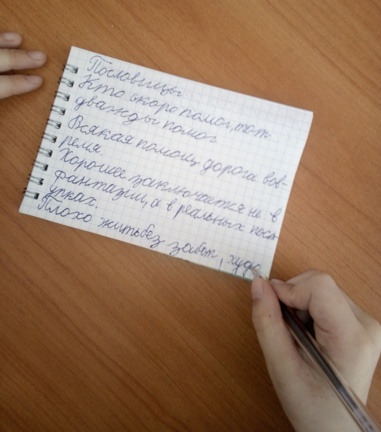 Пословицы
Кто скоро помог, тот
дважды помог
Всякая помощь дорога вов-
ремя
Хорошее заключается не в
фантазии, а в реальных пос-
упках.
Плохо жить без забот, худо